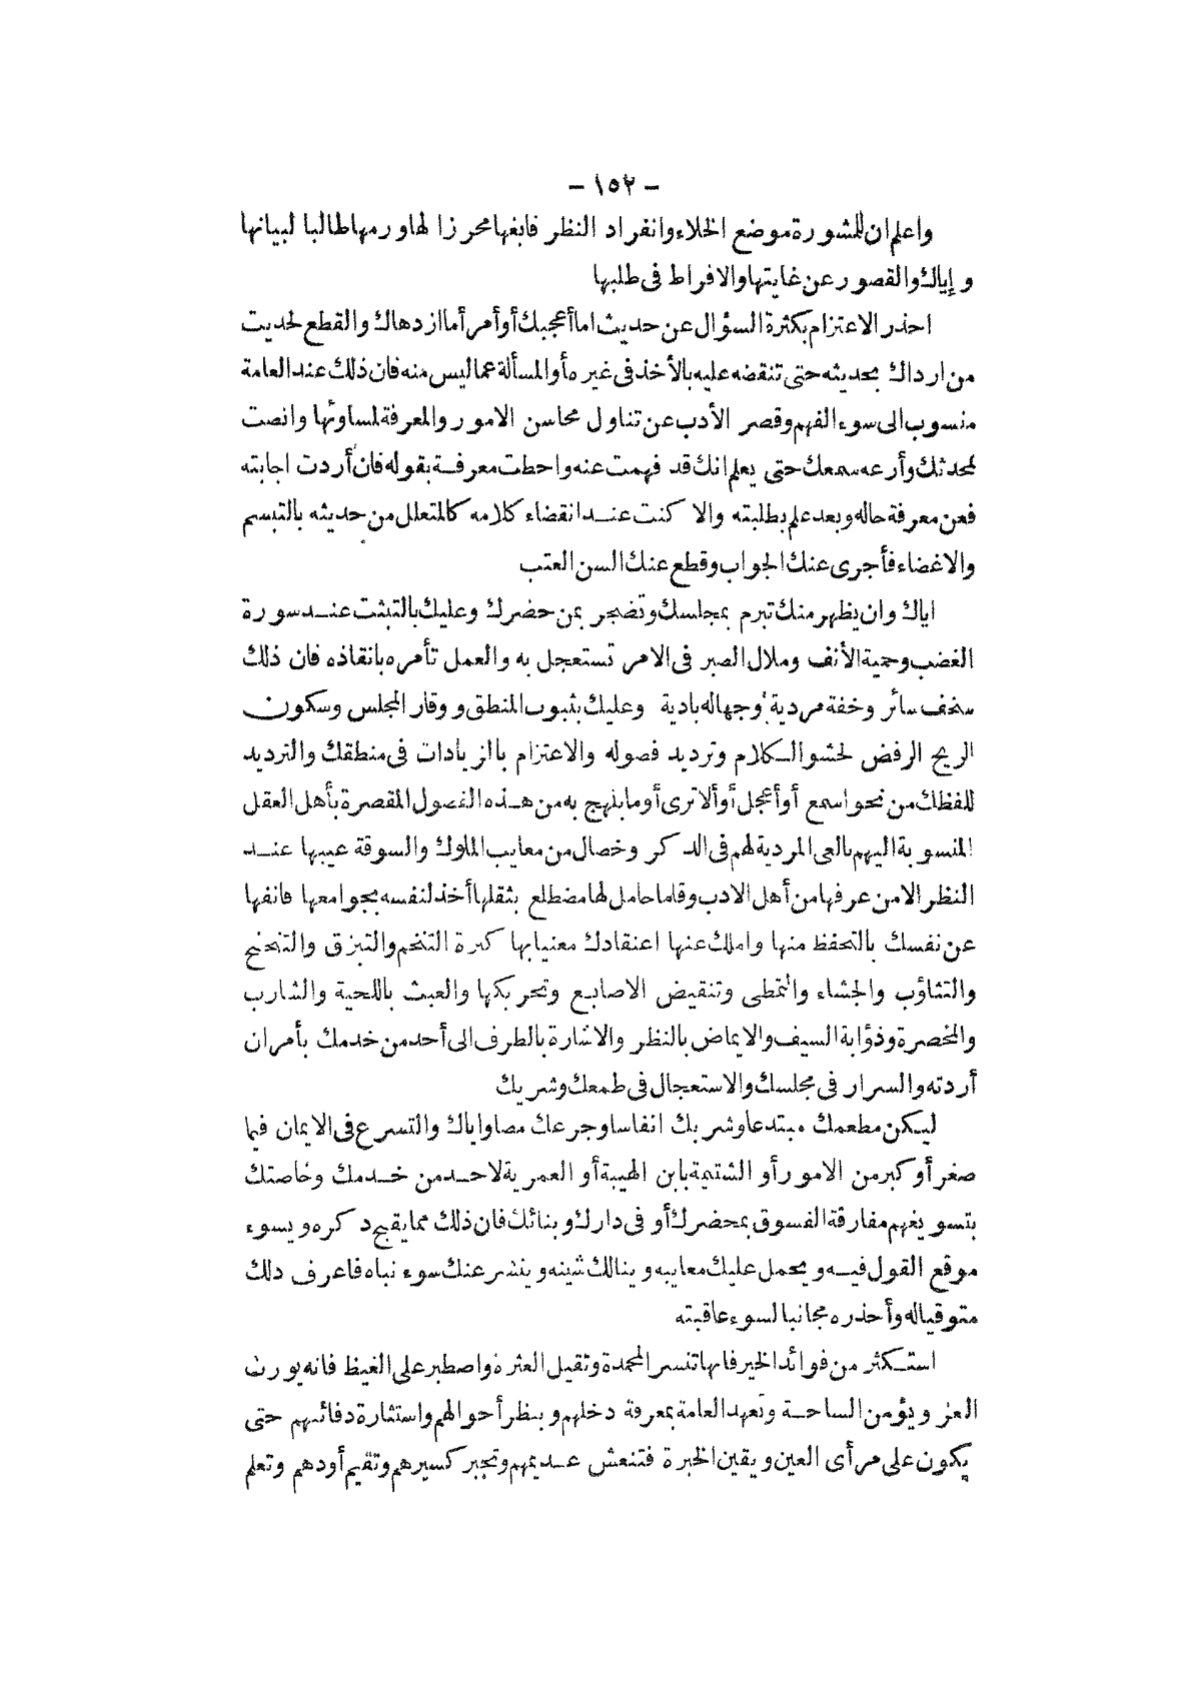 - ١٥٢ -
واعلم ان للمشورة موضع الخلاء وانفراد النظر فابغها محرزا لها ورمها طالبا لبيانها
وإياك والقصور عن غايتها والافراط فى طلبها
احذر الاعتزام بكثرة السؤال عن حديث اما أعجبك أو أمر أما ازدهاك والقطع لحديث
من ارداك بحديثه حتى تنقضه عليه بالأخذ فى غيره أو المسألة عما ليس منه فان ذلك عند العامة
منسوب الى سوء الفهم وقصر الأدب عن تناول محاسن الامور والمعرفة لمساوئها وانصت
لمحدثك وأرعه سمعك حتى يعلم انك قد فهمت عنه واحطت معرفة بقوله فان أردت اجابته
فعن معرفة حاله وبعد علم بطلبته والا كنت عند انقضاء كلامه كالمتعلل من حديثه بالتبسم
والاغضاء فأجرى عنك الجواب وقطع عنك السن العتب
اياك وان يظهر منك تبرم بمجلسك وتضجر بمن حضرك وعليك بالتبثت عند سورة
الغضب وحمية الأنف وملال الصبر فى الامر تستعجل به والعمل تأمره بانقاذه فان ذلك
سخف سائر وخفة مردية وجهاله بادية وعليك بثبوب المنطق و وقار المجلس وسكون
الريح الرفض لحشو الكلام وترديد فصوله والاعتزام بالزيادات فى منطقك والترديد
للفظك من نحو اسمع أو أعجل أو ألا ترى أو ما يلهج به من هذه الفصول المقصرة بأهل العقل
المنسوبة اليهم بالعى المردية لهم فى الدكر وخصال من معايب الملوك والسوقة عيبها عند
النظر الا من عرفها من أهل الادب وقاما حامل لها مضطلع بثقلها أخذ لنفسه بجوامعها فانفها
عن نفسك بالتحفظ منها واملك عنها اعتقادك معنيا بها كثرة التنخم والتبزق والتنحنح
والتثاؤب والجشاء والتمطى وتنقيض الاصابع وتحريكها والعبث باللحية والشارب
والمخصرة وذؤابة السيف والايماض بالنظر والاشارة بالطرف الى أحد من خدمك بأمر ان
أردته والسرار فى مجلسك والاستعجال فى طمعك وشربك
ليكن مطعمك مبتدعا وشربك انفاسا وجرعك مصا واياك والتسرع فى الايمان فيما
صغر أو كبر من الامور أو الشتيمة بابن الهيبة أو العمرية لاحد من خدمك وخاصتك
بتسويغهم مفارقة الفسوق بمحضرك أو فى دارك وبنائك فان ذلك مما يقبح دكره ويسوء
موقع القول فيه ويحمل عليك معايبه وينالك شينه وينشر عنك سوء نباه فاعرف دلك
متوقيا له وأحذره مجانبا لسوء عاقبته
استكثر من فوائد الخير فانها تنسر المحمدة وتقيل العثرة واصطبر على الغيظ فانه يورث
العز ويؤمن الساحة وتعهد العامة بمعرفة دخلهم وبنظر أحوالهم واستثارة دفائنهم حتى
يكون على مرأى العين ويقين الخبرة فتنعش عديمهم وتجبر كسيرهم وتقيم أودهم وتعلم